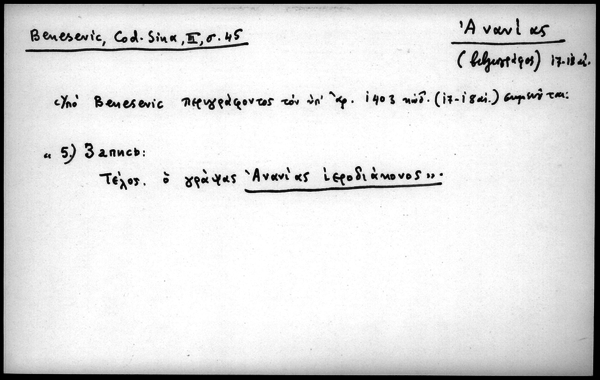 Benesevic, Cod. Sina, III, σ. 45
Ἀνανίας
(βιβλιογράφος) 17-18 αἰ.
Ὑπό Benesevic περιγράφοντος τόν ὑπ' ἀρ. 1403 κώδ. (17-18 αἰ.) σημειοῦται:
« 5.) Запись:
Τέλος. ὁ γράψας Ἀνανίας ἱεροδιάκονος».